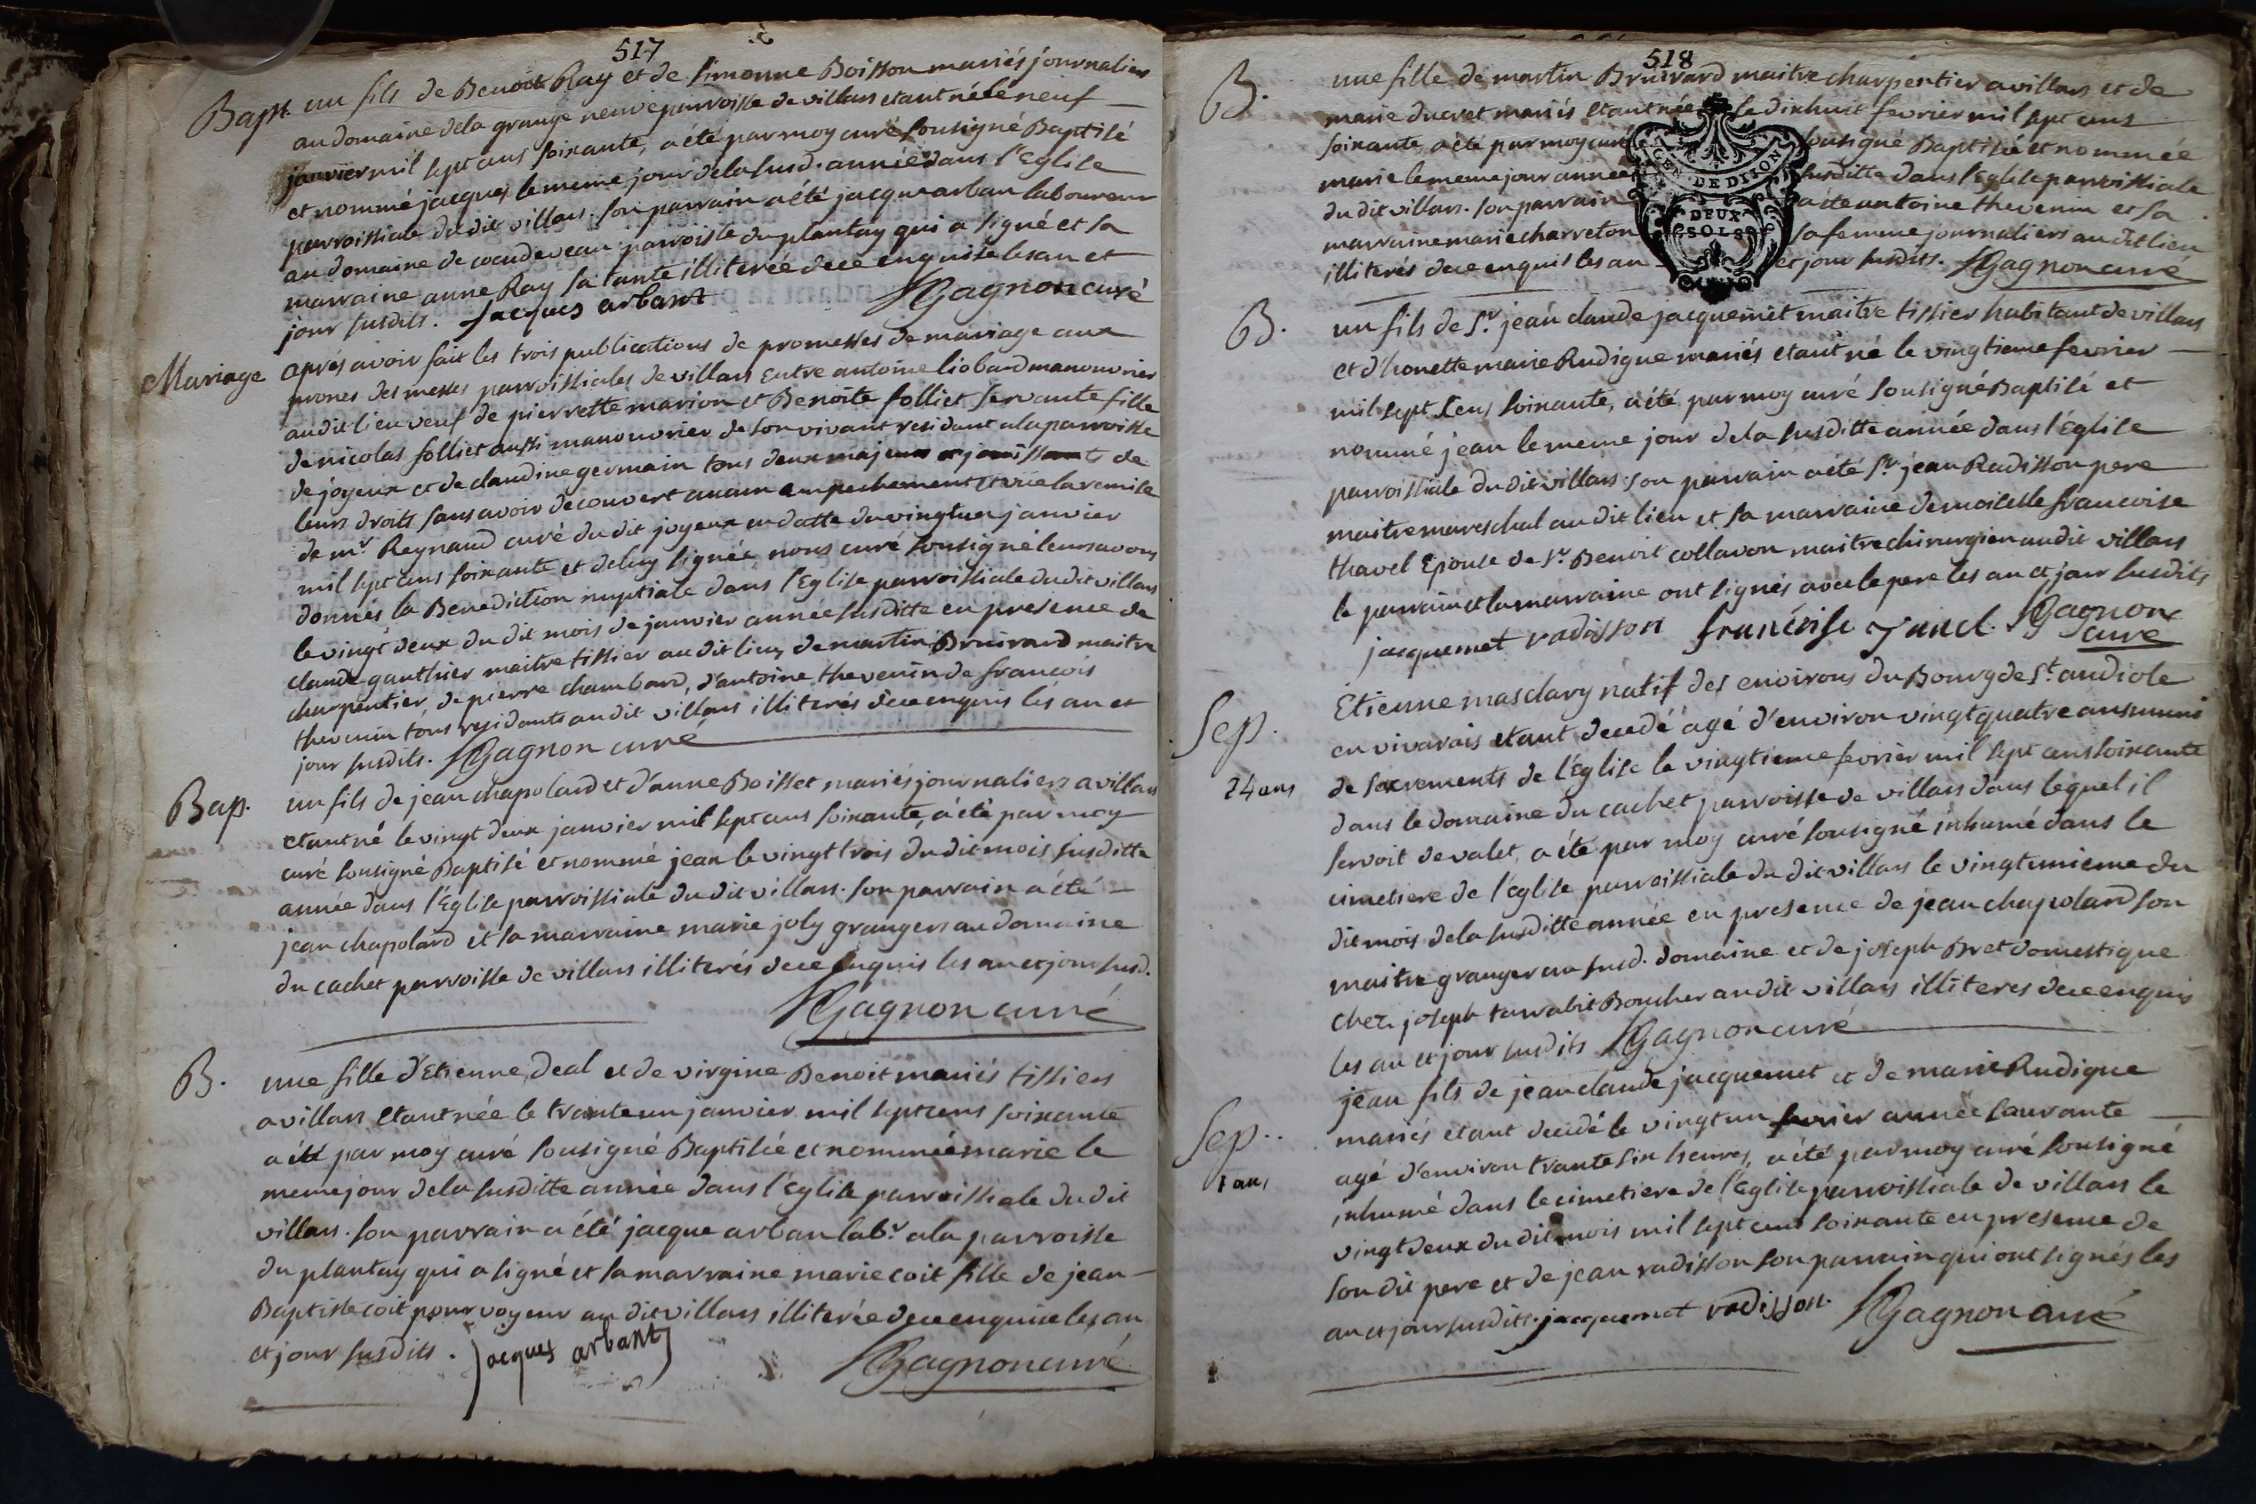 517
Bapt. un fils de Benoit Ray et de Simonne Boisson mariés journaliers
au domaine dela grange neuve parroisse de villars etant né le neuf
janvier mil sept cens soixante, a été par moy curé sousigné Baptisé
et nommé jacques le meme jour dela susd. année dans l'Eglise
parroissiale du dit villars. son parrain a été jacque arban laboureur
au domaine de parroisse du plantay qui a signé et sa
marraine anne Ray sa tante illiterée dece enquise les an et
jour susdits. Jacques arbant Gagnon curé
Mariage aprés avoir fait les trois publications de promesses de mariage aux
prones des messes parroissiales de villars entre antoine liobard manouvrier
au dit lieu veuf de pierrette marion et Benoite folliet servante fille
de nicolas folliet aussi manouvrier de son vivant residant ala parroisse
de joyeux et de claudine germain tous deux de
leurs droits sans avoir decouvert aucun empechement et vüe la remise
de mr Reynaud curé du dit joyeux en datte du vingtun janvier
mil sept cens soixante et deluy signée nous curé sousigné leurs avons
donnés la Benediction nuptiale dans l'Eglise parroissiale du dit villars
le vingt deux du dit mois de janvier année susditte en presence de
claude gauthier maitre tissier au dit lieu, de martin Bruivard maitre
charpentier, de pierre chambard, d'antoine thevenin de francois
thevenin tous residants au dit villars illiterés dece enquis les an et
jour susdits. Gagnon curé
Bap. un fils de jean chapolard et d'anne Boisset mariés journaliers a villars
etant né le vingt deux janvier mil sept cens soixante, a été par moy
curé sousigné Baptisé et nommé jean le vingt trois du dit mois susditte
année dans l'Eglise parroissiale du dit villars. son parrain a été
jean chapolard et sa marraine marie joly grangers au domaine
du cachet parroisse de villars illiterés dece enquis les an et jour susd.
Gagnon curé
B. une fille d'Etienne deal et de virgine Benoit mariés tissiers
a villars etant née le trante un janvier mil sept cens soixante
a été par moy curé sousigné Baptisée et nommée marie le
meme jour dela susditte année dans l'Eglise parroissiale du dit
villars. son parrain a été jacque arban labr ala parroisse
du plantay qui a signé et sa marraine marie coit fille de jean
Baptiste coit pourvoyeur au dit villars illiterée dece enquise les an
et jour susdits. jacques arbant Gagnon curé
518
B. une fille de martin Bruivard maitre charpentier a villars et de
marie ducret mariés etant née le dixhuit fevrier mil sept cens
soixante, a été par moy curé sousigné Baptisée et nommée
marie le meme jour année susditte dans l'Eglise parroissiale
du dit villars. son parrain a été antoine thevenin et sa
marraine marie charreton sa femme journaliers au dit lieu
illiterés dece enquis les an et jour susdits. Gagnon curé
GEN. DE DIJON
DEUX
SOLS
B. un fils de Sr jean claude jacquemet maitre tissier habitant de villars
et d'honette marie Rudigue mariés etant né le vingtieme fevrier
mil sept cens soixante, a été par moy curé sousigné Baptisé et
nommé jean le meme jour dela susditte année dans l'Eglise
parroissiale du dit villars. son parrain a été Sr jean Radisson pere
maitre mareschal au dit lieu et sa marraine demoiselle francoise
thavel Epouse de Sr Benoit collavon maitre chirurgien au dit villars
le parrain et la marraine ont signés avec le pere les an et jour susdits
jacquemet radisson francoise Gagnon
curé
Sep. Etienne masclary natif des environs du Bourg de St andiole
en vivarais etant decedé agé d'environ vingt quatre ans muni
24 ans de sacrements de l'Eglise le vingtieme fevrier mil sept cens soixante
dans le domaine du cachet parroisse de villars dans lequel il
servoit de valet, a été par moy curé sousigné inhumé dans le
cimetiere de l'eglise parroissiale du dit villars le vingtunieme du
dit mois dela susditte année en presence de jean chapolard son
maitre granger au susd. domaine et de joseph Bret domestique
chez joseph Boucher au dit villars illiteres dece enquis
les an et jour susdits Gagnon curé
Sep. jean fils de jean claude jacquemet et de marie Rudigue
mariés etant decedé le vingt un fevrier année courante
agé d'environ trante six heures, a été par moy curé sousigné
1 an inhumé dans le cimetiere de l'Eglise parroissiale de villars le
vingt deux du dit mois mil sept cens soixante en presence de
son dit pere et de jean radisson son parrain qui ont signés les
an et jour susdits. jacquemet radisson. Gagnon curé